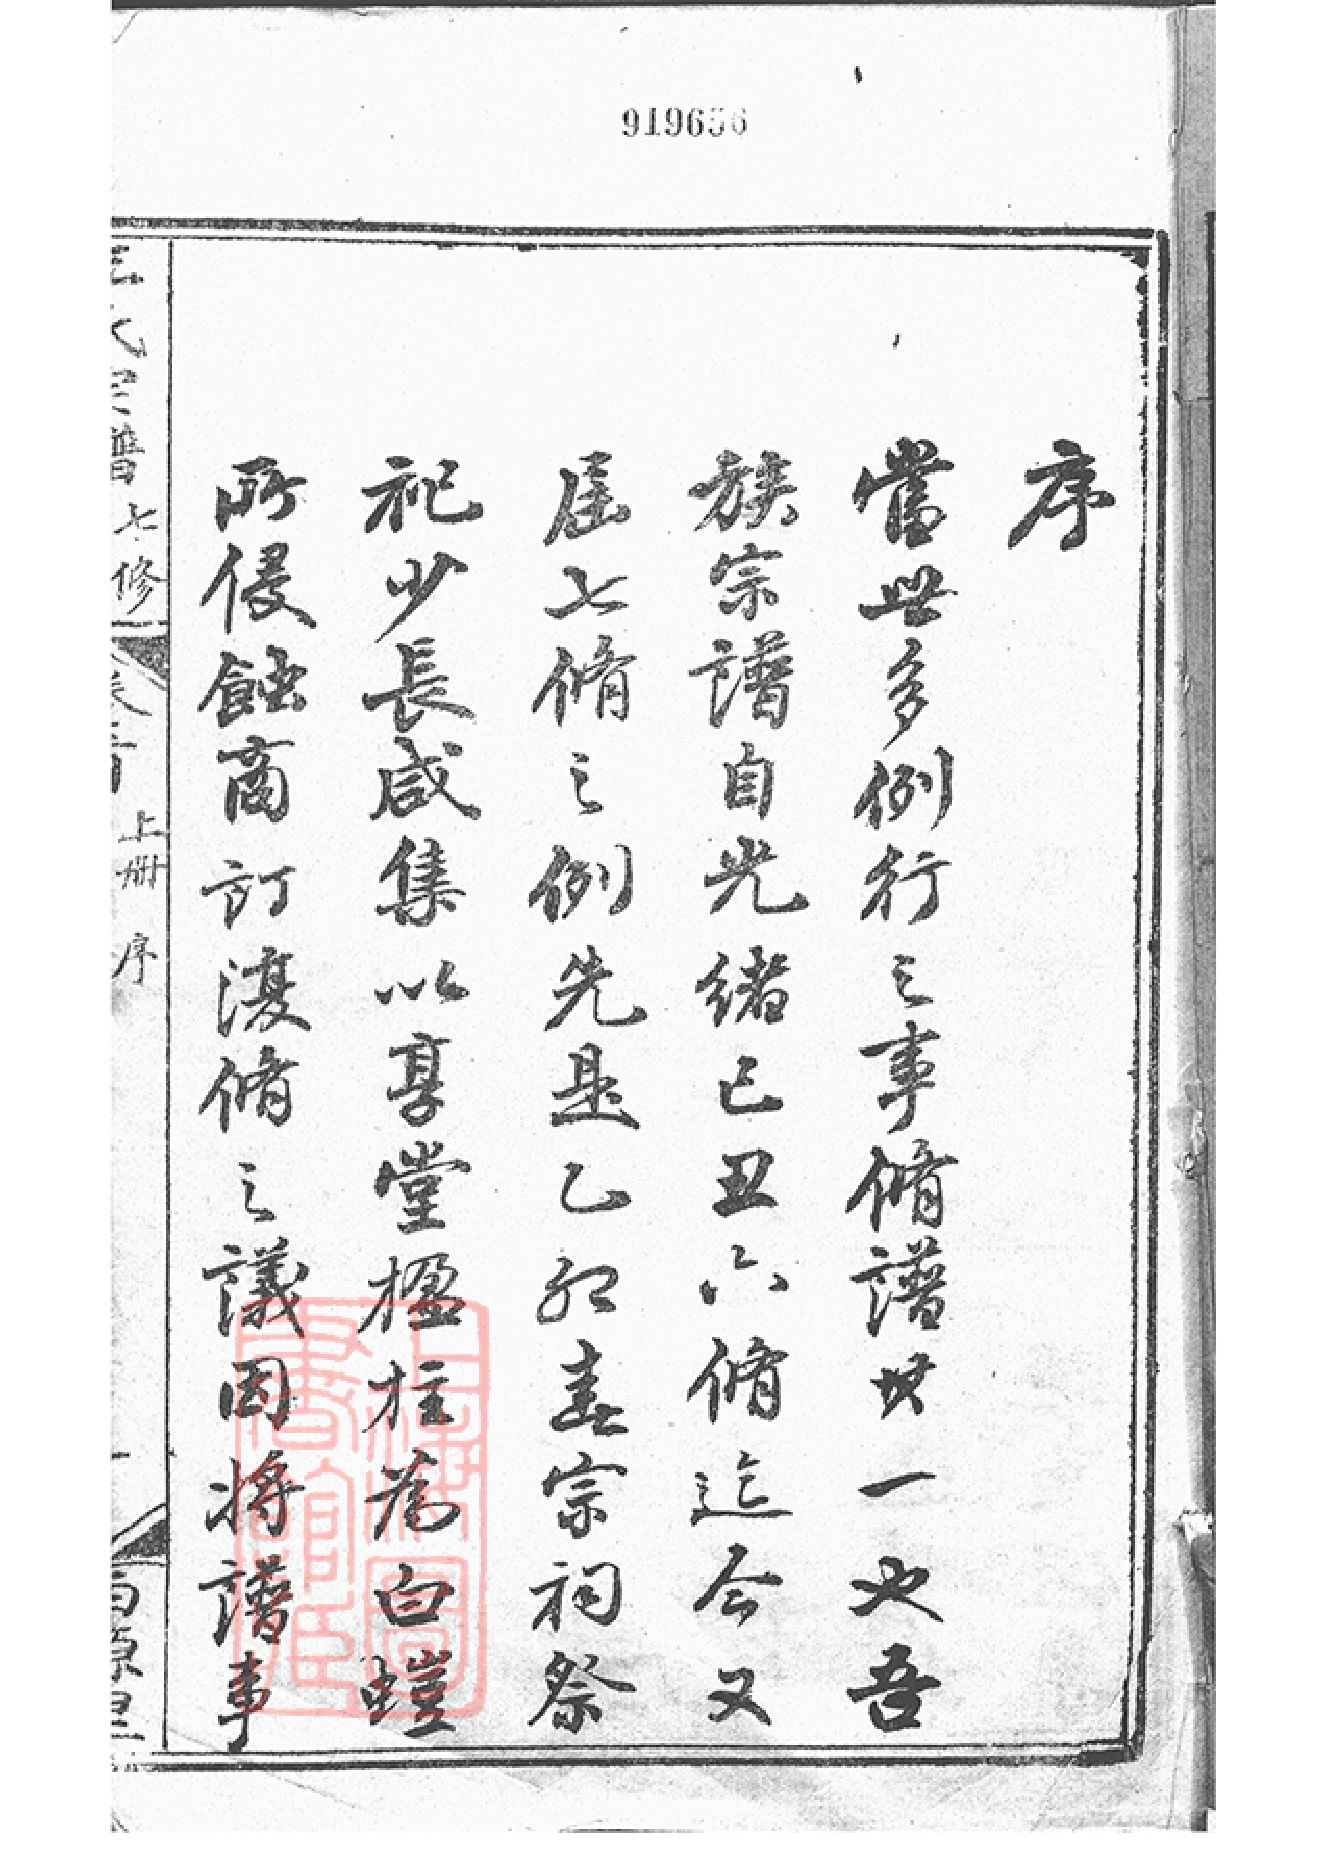 919656
序
當世多例行之事脩譜其一也吾
族宗譜自光緒已丑六脩迄今又
屆七脩之例先是乙卯春宗祠祭
祀少長咸集以享堂楹柱為白螘
所侵蝕商訂復脩之議因將譜事
氏宗譜七修
卷首
上册
序
上海圖書館臧